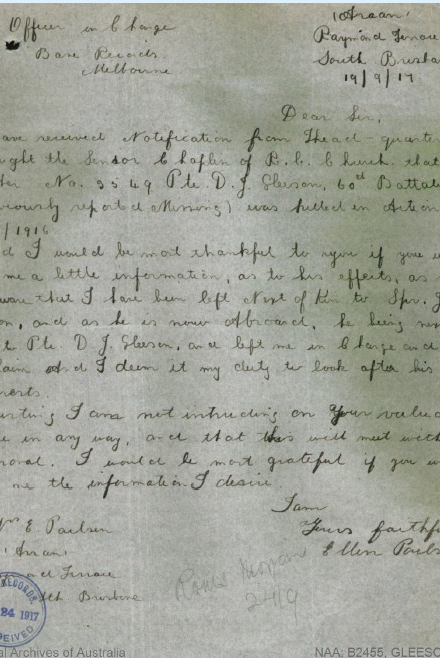 Officer in Charge
Base Records
Melbourne
"Araan"
Raymond Terrace
South Brisba
19/9/17
Dear Sir,
ave received Notification from Head-quarter
ught the Senior Chaplin of R.C. Church that
No. 3549 Pte. D. J. Gleeson, 60th Battal
viously reported Missing) was killed in Action
/1916
d I would be most thankful to you if you w
me a little information, as to his effects, as
ware that I have been left Next of Kin to Spr. J.
on, and as he is now Abroard, he being nex
to Pte. D. J. Gleeson, and left me in Charge and
And I deem it my duty to look after his
rests.
usting I am not intruding on your valued
e in any way, and that this will meet with
roval. I would be most grateful if you w
me the information I desire.
I am
Yours faithf
Ellen Pauls
E. Paulsen
"Araan"
ond Terrace
th Brisbane
RECORDS
24 1917
EIVED
24/9
al Archives of Australia
NAA: B2455, GLEESO